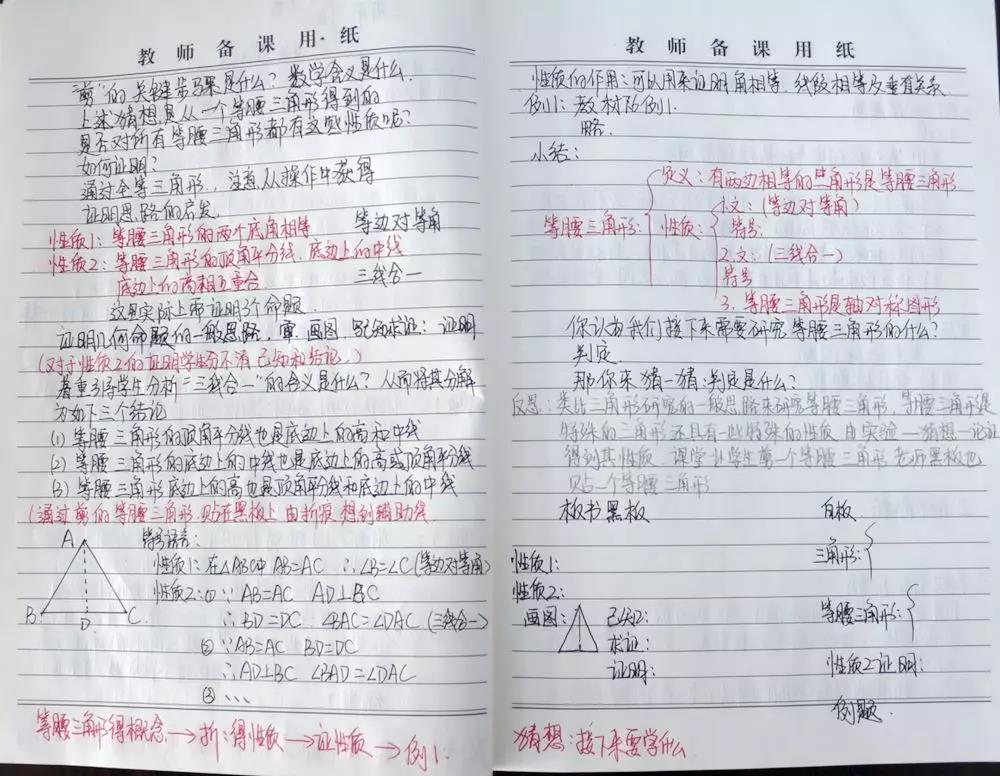 教师备课用纸
"剪"的关键步骤是什么？数学含义是什么.
上述猜想是从一个等腰三角形得到的
是否对所有等腰三角形都有这些性质呢？
如何证明？
通过全等三角形，注意从操作中获得
证明思路的启发.
性质1：等腰三角形的两个底角相等 等边对等角
性质2：等腰三角形的顶角平分线、底边上的中线
底边上的高相互重合. 三线合一
这里实际上需证明3个命题
证明几何命题的一般思路，审、画图、写知求证：证明
(对于性质2的证明学生分不清已知和结论.)
着重引导学生分析"三线合一"的含义是什么？从而将其分解
为如下三个结论
(1) 等腰三角形的顶角平分线也是底边上的高和中线
(2) 等腰三角形的底边上的中线也是底边上的高或顶角平分线
(3) 等腰三角形底边上的高也是顶角平分线和底边上的中线
(通过剪的等腰三角形.贴在黑板上由折痕想到辅助线.
A
B
D
C
符号语言：
性质1：在△ABC中 AB=AC ∴∠B=∠C (等边对等角)
性质2：① ∵AB=AC AD⊥BC
∴BD=DC ∠BAC=∠DAC (三线合一)
② ∵AB=AC BD=DC
∴AD⊥BC ∠BAD=∠DAC
③ ...
等腰三角形得概念→折：得性质→证性质→例1.
教师备课用纸
性质的作用：可以用来证明角相等、线段相等及垂直关系.
例1：教材76例1.
略.
小结：
等腰三角形：
定义：有两边相等的三角形是等腰三角形
性质：
1.文：(等边对等角)
符号
2.文：(三线合一)
符号
3.等腰三角形是轴对称图形
你认为我们接下来需要研究等腰三角形的什么？
判定.
那你来猜一猜：判定是什么？
反思：类比三角形研究的一般思路来研究等腰三角形，等腰三角形是
特殊的三角形还具有一些特殊的性质 由实验—猜想—论证
得到其性质. 课堂让学生剪一个等腰三角形 老师黑板也
贴一个等腰三角形
板书黑板 白板
三角形：
性质1：
性质2：
画图： 已知：
求证：
证明：
等腰三角形：
性质2证明：
例题.
猜想：接下来要学什么